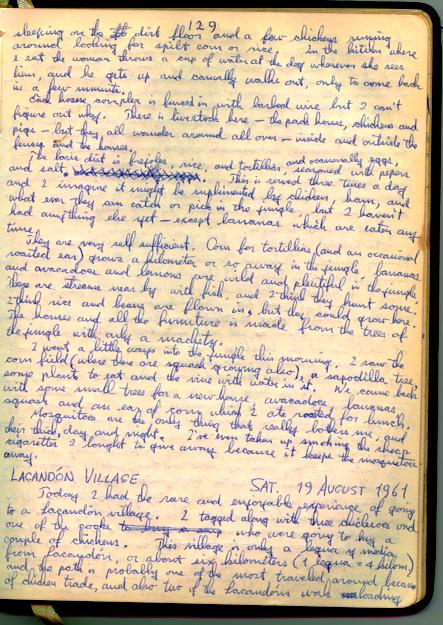 129
sleeping on the dirt floor and a few chickens running
around looking for spilt corn or rice. In the kitchen where
I eat the woman throws a cup of water at the dog whenever she sees
him, and he gets up and casually walks out, only to come back
in a few minutes.
Each house complex is fenced in with barbed wire but I can't
figure out why. There is livestock here - the pack horses, chickens and
pigs - but they all wander around all over - inside and outside the
fences and the houses.
The basic diet is frijoles, rice, and tortillas, and occasionally eggs,
and salt, seasoned with peppers
This is served three times a day
and I imagine it might be suplimented by chicken, ham, and
what ever they can catch or pick in the jungle, but I haven't
had anything else yet - except bananas which are eaten any
time.
They are very self sufficient. Corn for tortillas (and an occasional
roasted ear) grows a kilometer or so away in the jungle, bananas
and avacadoes and lemons are wild and plentiful in the jungle.
There are streams near by with fish, and I think they hunt some.
I think rice and beans are flown in, but they could grow here.
The houses and all the furniture is made from the trees of
the jungle with only a machety.
I went a little ways into the jungle this morning. I saw the
corn field (where there are squash growing also), a sapodilla tree,
some plants to eat and the vine with water in it. We came back
with some small trees for a new house, avacadoes, bananas,
squash and an ear of corn which I ate roasted for lunch.
Mosquitoes are the only thing that really bothers me, and
their thick, day and night. I've even taken up smoking the cheap
cigarettes I bought to give away because it keeps the mosquitoes
away.
LACANDÓN VILLAGE SAT. 19 AUGUST 1961
Today I had the rare and enjoyable experience of going
to a Lacandón village. I tagged along with three chicleros and
one of the cooks who were going to buy a
couple of chickens. This village is only a legua y media
from Lacandón, or about six kilometers (1 legua = 4 kilom.)
and the path is probably one of the most traveled around because
of chicken trade, and also two of the Lacandóns were loading